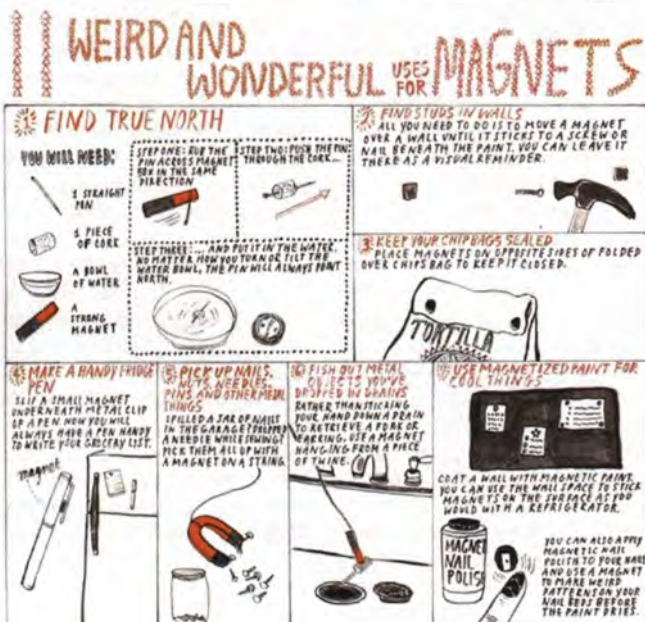 11 WEIRD AND
WONDERFUL USES
FOR MAGNETS
1. FIND TRUE NORTH
YOU WILL NEED:
1 STRAIGHT
PIN
1 PIECE
OF CORK
A BOWL
OF WATER
A
STRONG
MAGNET
STEP ONE: RUB THE
PIN ACROSS MAGNET
IN THE SAME
DIRECTION
STEP TWO: PUSH THE PIN
THROUGH THE CORK...
STEP THREE: ... AND PUT IT IN THE WATER.
NO MATTER HOW YOU TURN OR TILT THE
WATER BOWL, THE PIN WILL ALWAYS POINT
NORTH.
2. FIND STUDS IN WALLS
ALL YOU NEED TO DO IS TO MOVE A MAGNET
OVER A WALL UNTIL IT STICKS TO A SCREW OR
NAIL BENEATH THE PAINT. YOU CAN LEAVE IT
THERE AS A VISUAL REMINDER.
3. KEEP YOUR CHIP BAGS SEALED
PLACE MAGNETS ON OPPOSITE SIDES OF FOLDED
OVER CHIPS BAG TO KEEP IT CLOSED.
TORTILLA
MAKE A HANDY FRIDGE
PEN
SLIP A SMALL MAGNET
UNDERNEATH METAL CLIP
OF A PEN. NOW YOU WILL
ALWAYS HAVE A PEN HANDY
TO WRITE YOUR GROCERY LIST.
magnet
PICK UP NAILS,
NUTS, NEEDLES,
PINS AND OTHER METAL
THINGS
SPILLED A JAR OF NAILS
IN THE GARAGE? DROPPED
A NEEDLE WHILE SEWING?
PICK THEM ALL UP WITH
A MAGNET ON A STRING.
6. FISH OUT METAL
OBJECTS YOU'VE
DROPPED IN DRAINS
RATHER THAN STICKING
YOUR HAND DOWN A DRAIN
TO RETRIEVE A FORK OR
EARRING, USE A MAGNET
HANGING FROM A PIECE
OF TWINE.
USE MAGNETIZED PAINT FOR
COOL THINGS
COAT A WALL WITH MAGNETIC PAINT.
YOU CAN USE THE WALL SPACE TO STICK
MAGNETS ON THE SURFACE AS YOU
WOULD WITH A REFRIGERATOR.
MAGNET
NAIL
POLISH
YOU CAN ALSO APPLY
MAGNETIC NAIL
POLISH TO YOUR NAILS
AND USE A MAGNET
TO MAKE WEIRD
PATTERNS ON YOUR
NAIL BEDS BEFORE
THE PAINT DRIES.